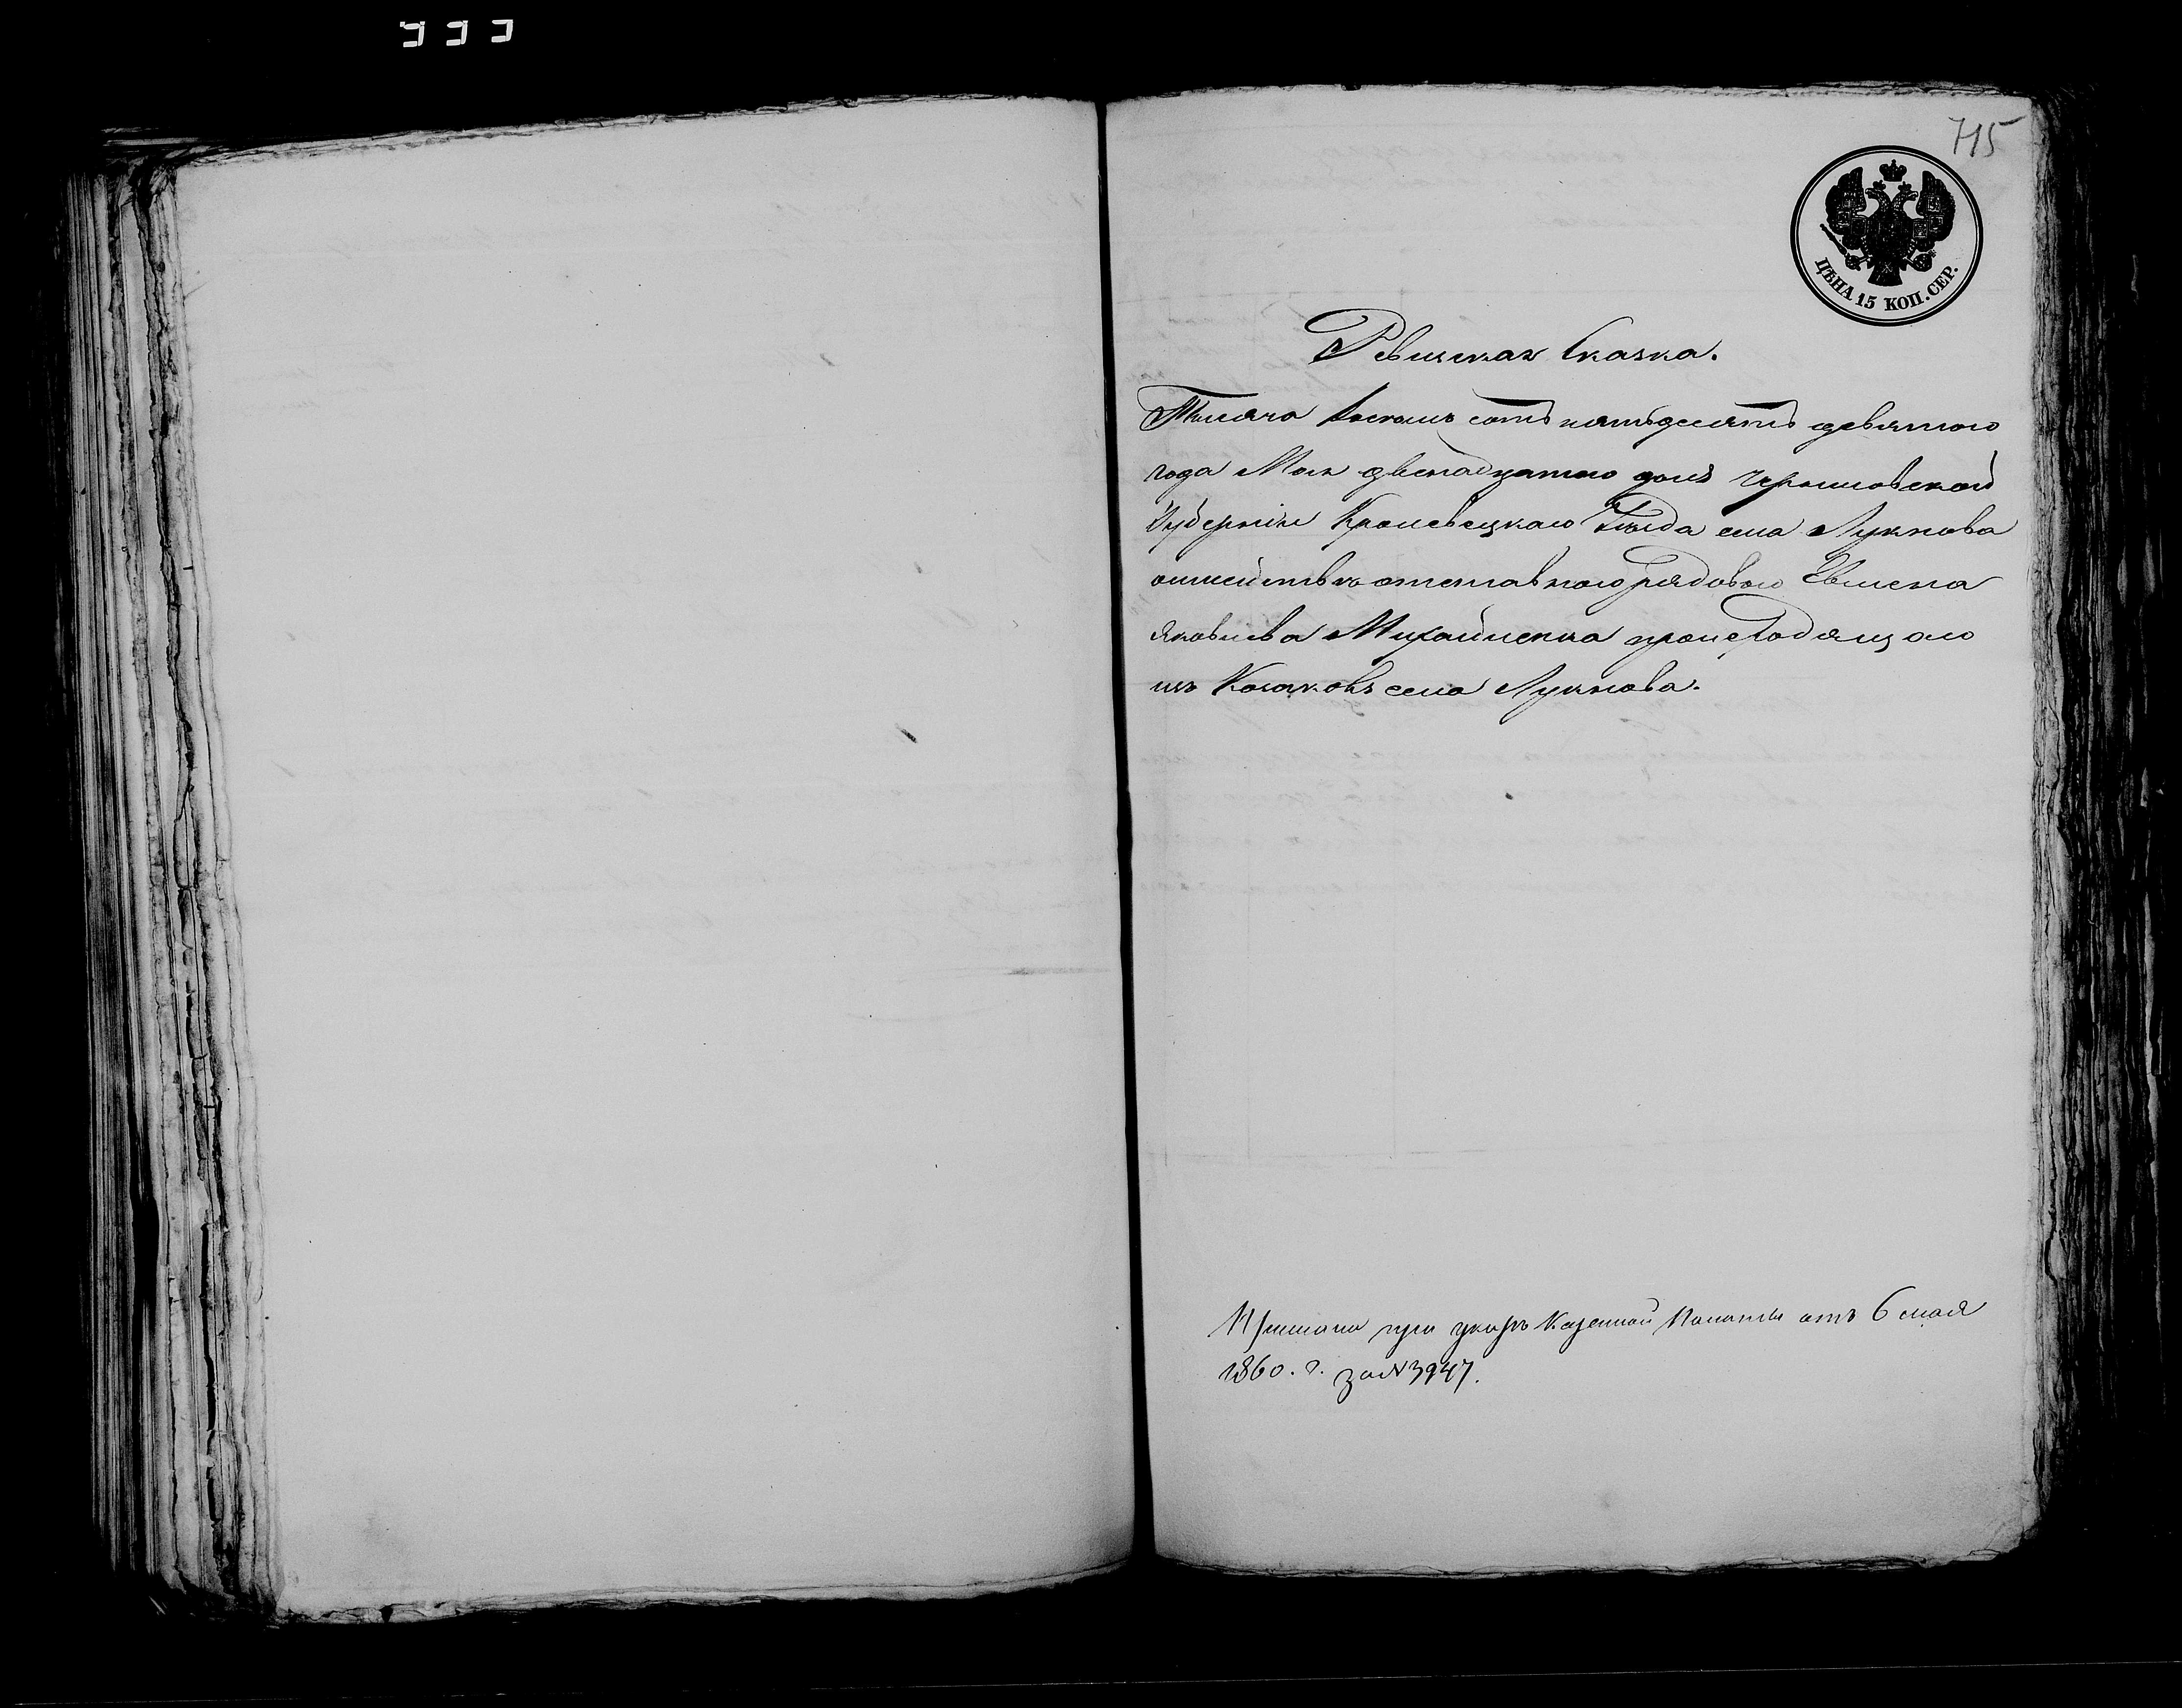 715
ЦѢНА 15 КОП. СЕР.
Ревизская Сказка.
Тысяча восемь сотъ пятьдесятъ девятого
года Мая двенадцатого дня Черниговской
Губерніи Кролевецкаго уѣзда села Лукнова
о семействѣ отставного рядового Евмена
Яковлева Михайленка происходящаго
изъ Козаковъ села Лукнова.
при указѣ Казенной Палаты отъ 6 мая
1860. г. за № 3947.